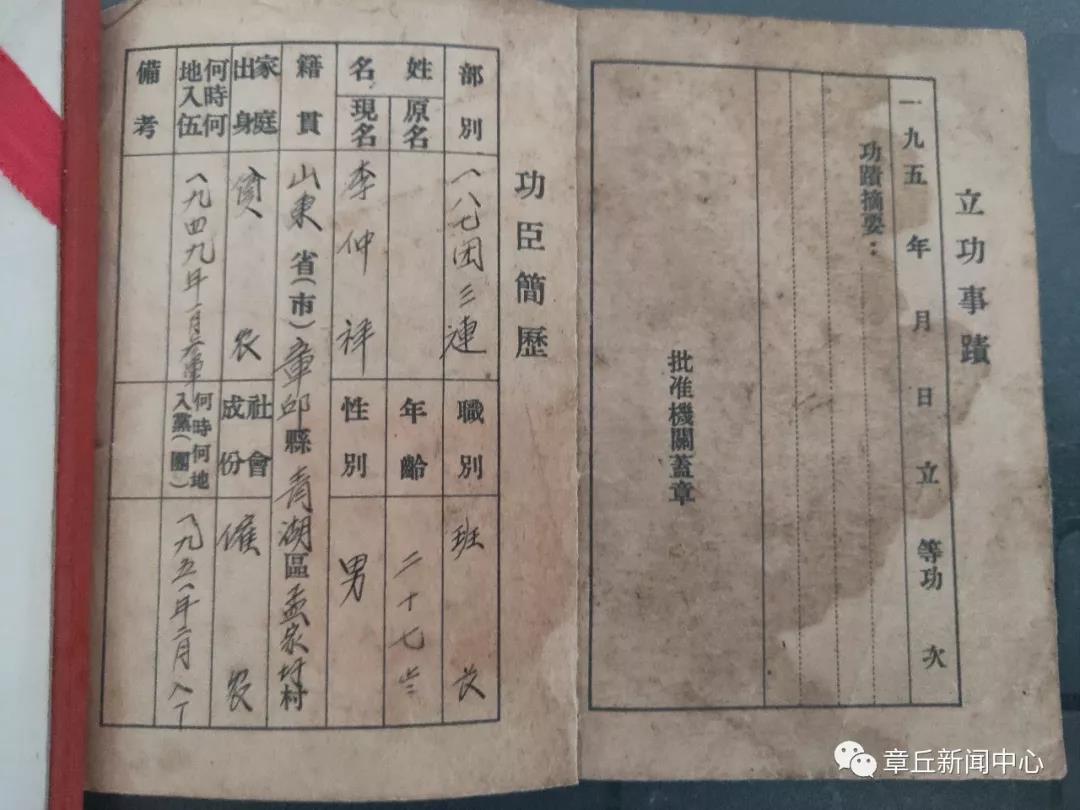 立功事蹟
一九五 年 月 日立 等功 次
功蹟摘要：
批准機關蓋章
功臣簡歷
部別 一八七团三連 職別 班长
姓名 原名 年齡 二十七岁
現名 李仲祥 性別 男
籍貫 山东省(市)章邱縣青湖區孟家圩村
家庭出身 貧农 社會成份 僱农
何時何地入伍 一九四九年一月 何時何地入黨(團) 一九五一年二月入
備考
章丘新闻中心